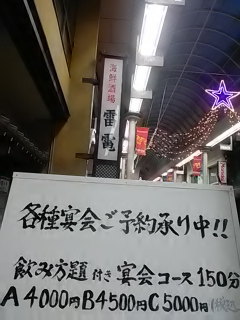 海鮮酒場
雷電
各種宴会ご予約承り中!!
飲み方題付き宴会コース150分
A4000円B4500円C5000円